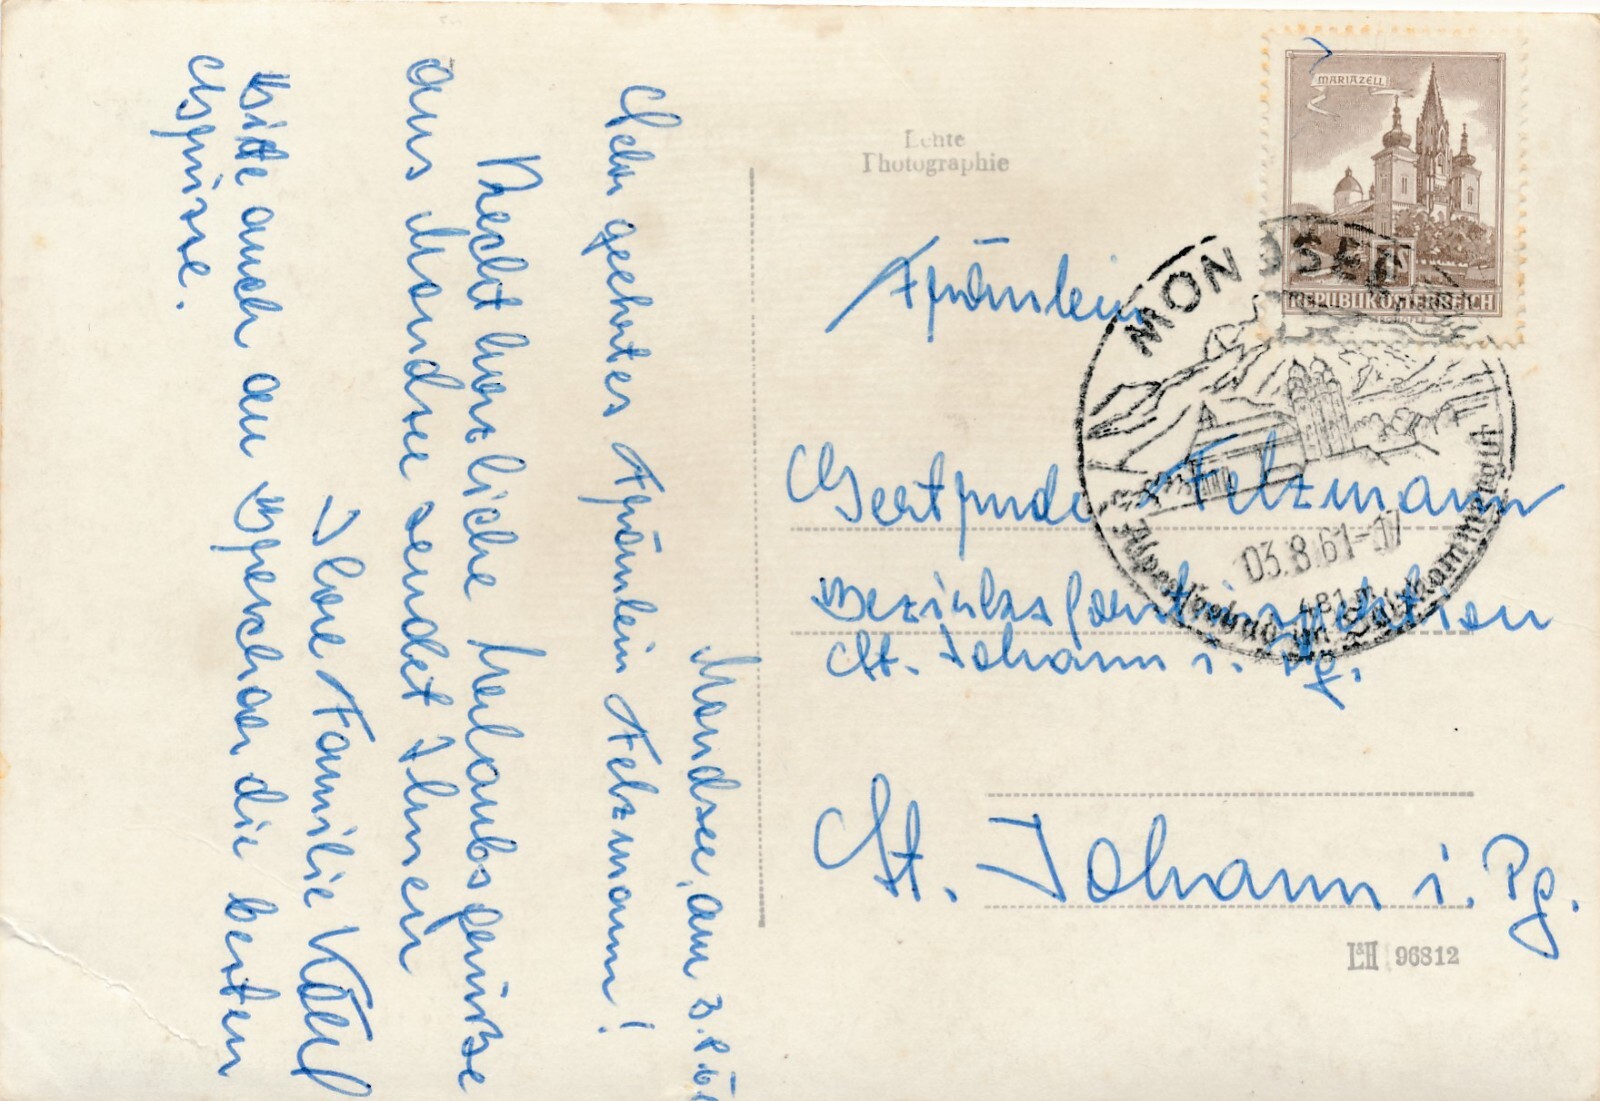 Mondsee, am 3.8.61
Sehr geehrtes Fräulein Felzmann!
Recht herzliche Urlaubsgrüße
aus Mondsee sendet Ihnen
Ihre Familie
Bitte auch an Herrn die besten
Grüsse.
Echte
Photographie
MARIAZELL
REPUBLIK ÖSTERREICH
MONDSEE
03.8.61-17
481 m
Alpenseebad im Salzkammergut
Fräulein
Gertrude Felzmann
Bezirksforstinspektion
St. Johann i. Pg.
St. Johann i. Pg.
L&H 96812